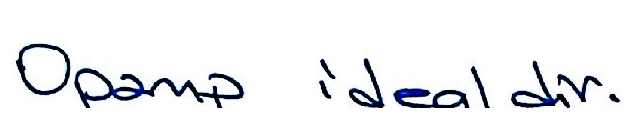 Opamp ideal dır.